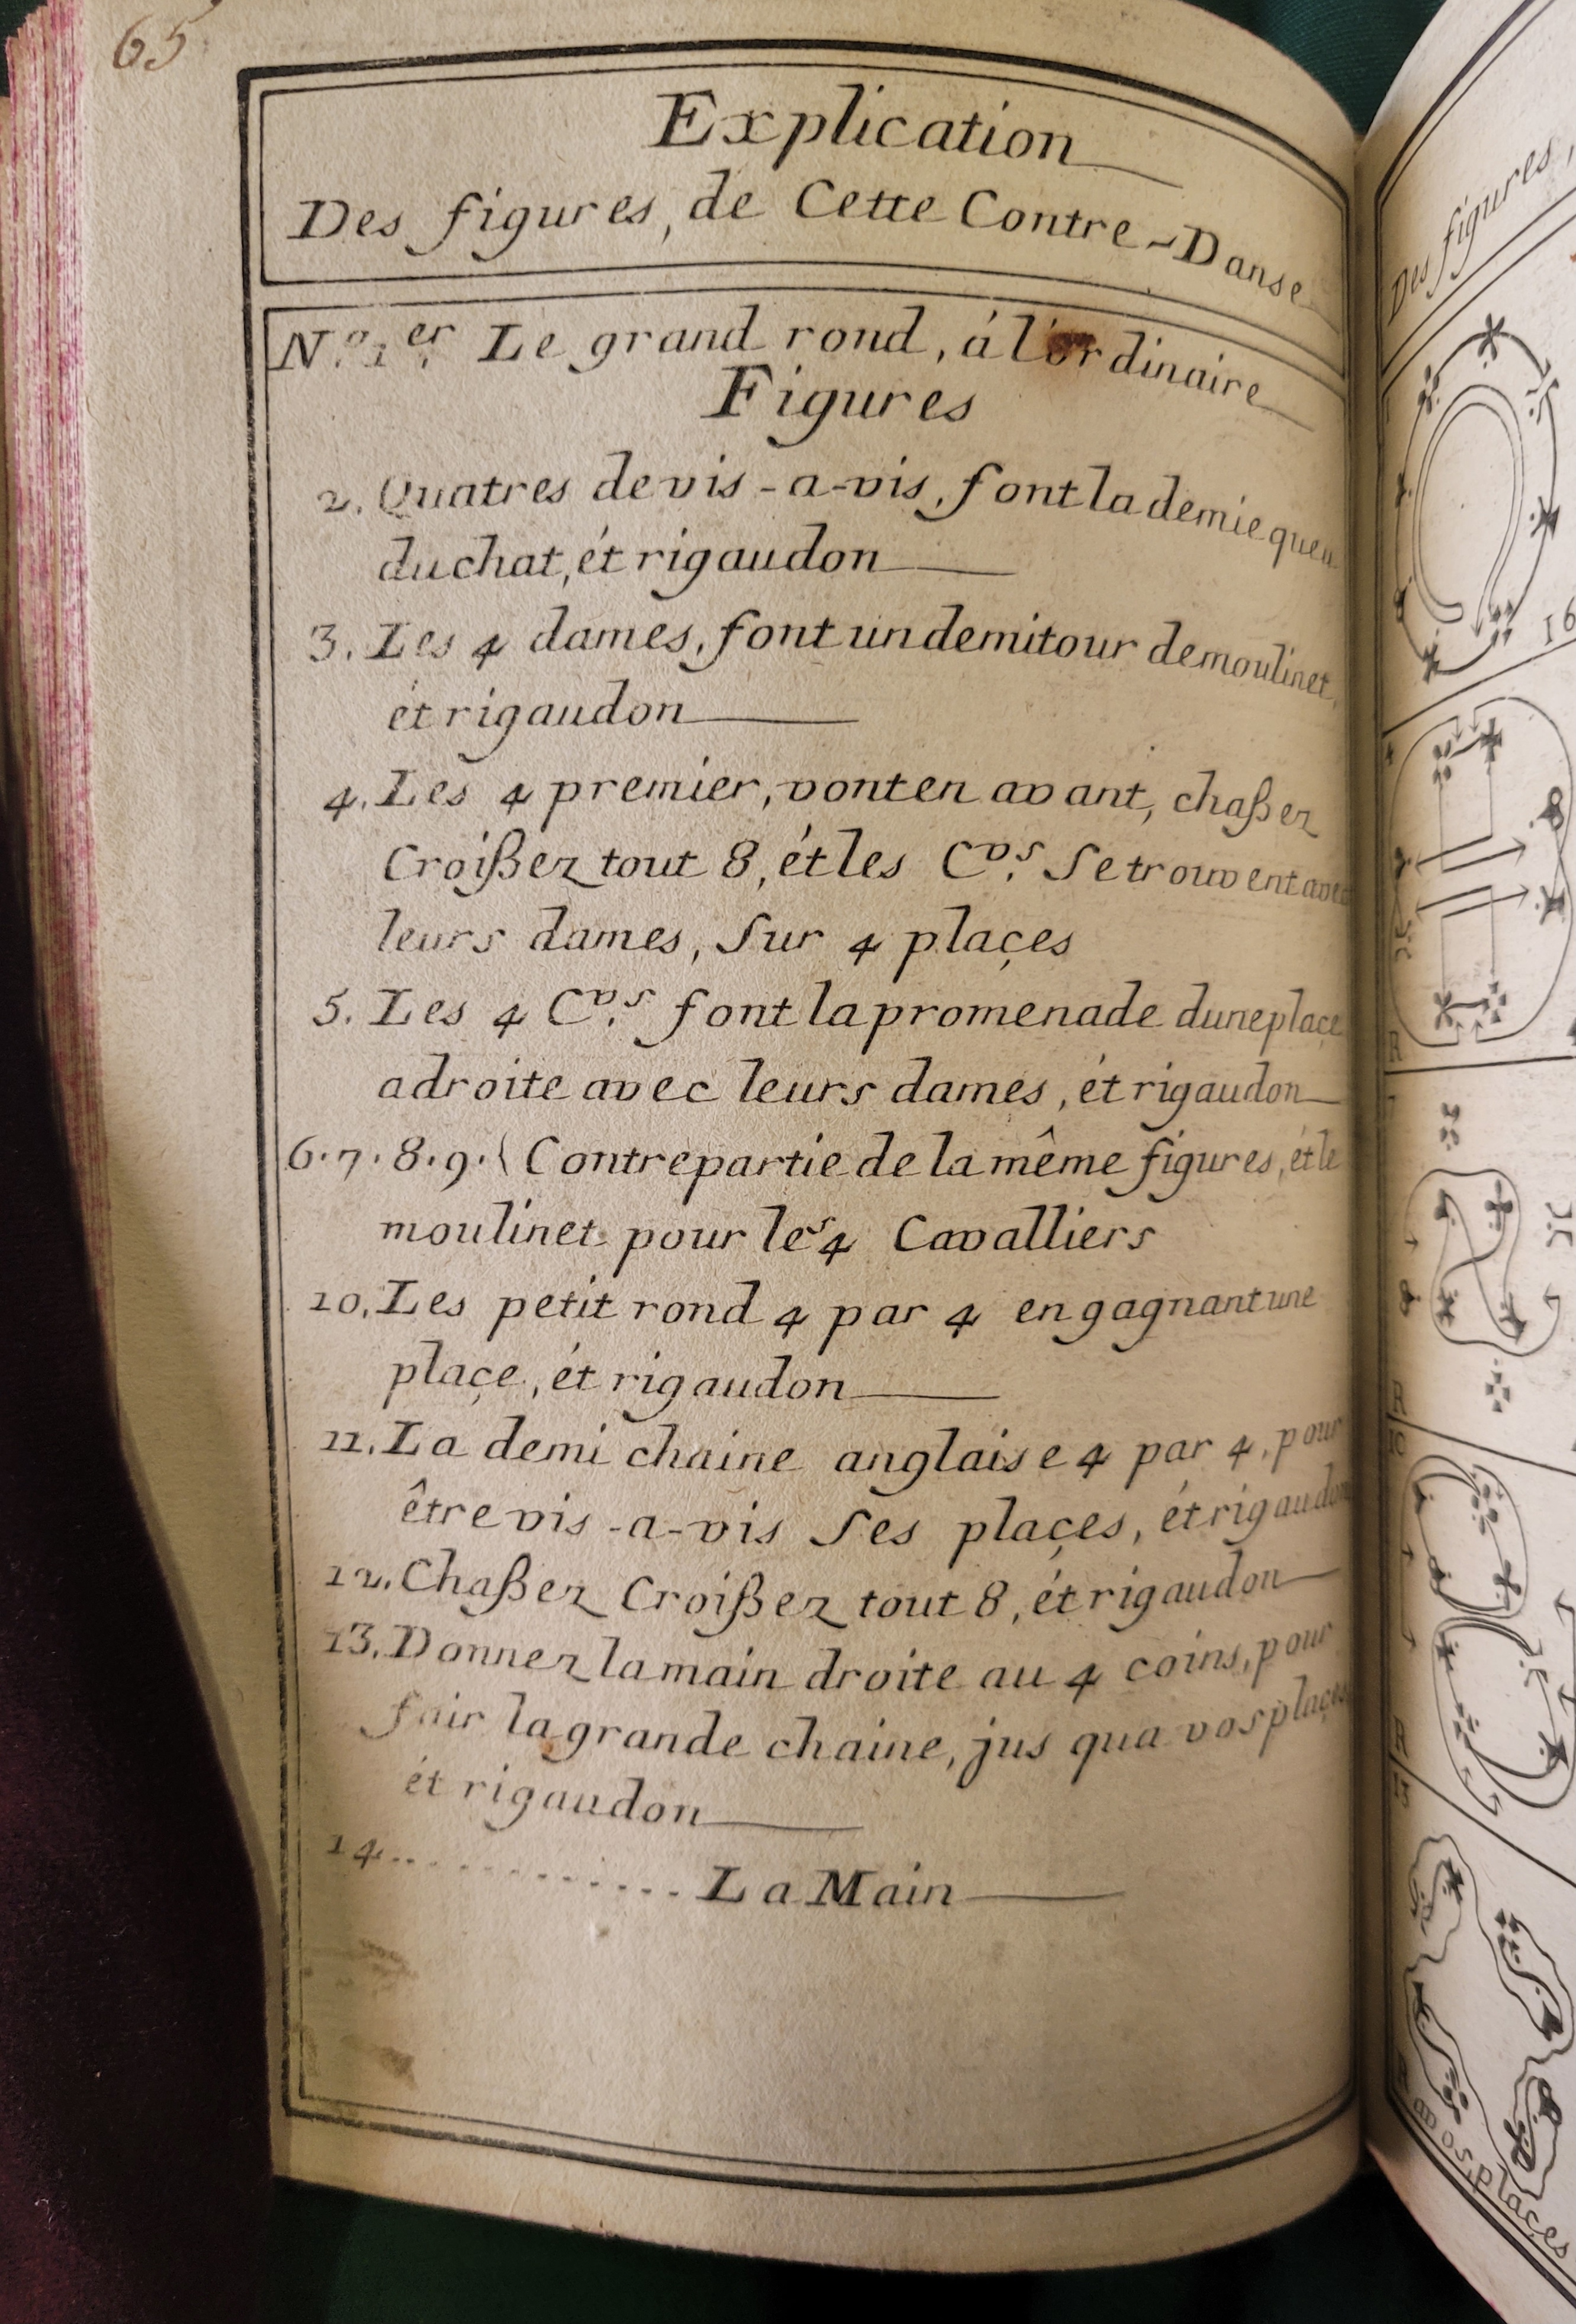 65
Explication
Des figures, de Cette Contre-Danse
N.o 1.er Le grand rond, á l'ordinaire
Figures
2. Quatres de vis-a-vis, font la demie queu
du chat, ét rigaudon
3. Les 4 dames, font un demi tour de moulinet,
ét rigaudon
4. Les 4 premier, vont en avant, chaßez
Croißez tout 8, ét les C.vs Se trouvent avec
leurs dames, Sur 4 plaçes
5. Les 4 C.vs font la promenade dune plaçe
a droite avec leurs dames, ét rigaudon
6.7.8.9.{ Contre partie de la même figures, ét le
moulinet pour les 4 Cavalliers
10. Les petit rond 4 par 4 en gagnant une
plaçe, ét rigaudon
11. La demi chaine anglaise 4 par 4, pour
être vis-a-vis Ses plaçes, ét rigaudon
12. Chaßez Croißez tout 8, ét rigaudon
13. Donnez la main droite au 4 coins, pour
fair la grande chaine, jus qua vos plaçes
ét rigaudon
14............. La Main
Des figures,
16
vos plaçes